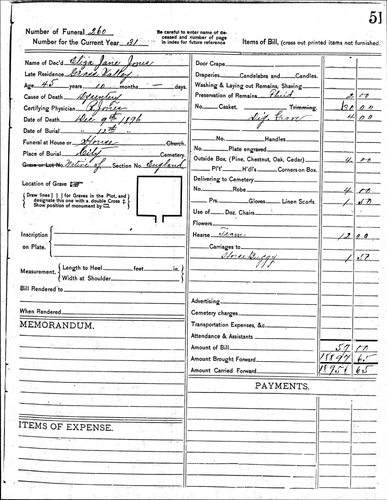 51
Number of Funeral 260
Number for the Current Year 31
Be careful to enter name of deceased and number of page in index for future reference
Items of Bill, (cross out printed items not furnished.)
Name of Dec'd Eliza Jane Jones
Late Residence Grass Valley
Age 45 years 10 months - days.
Cause of Death
Certifying Physician
Date of Death Dec 9th 1896
Date of Burial " 12th "
Funeral at House or House Church.
Place of Burial City Cemetery
Grave or Lot No. Native of Section No. England
Location of Grave
Draw lines [ | ] for Graves in the Plot, and designate this one with a double Cross
Show position of monument by
Inscription on Plate.
Measurement.
Length to Heel feet in.
Width at Shoulder
Bill Rendered to
When Rendered
MEMORANDUM.
ITEMS OF EXPENSE.
Door Crape
Draperies Candelabra and Candles.
Washing & Laying out Remains, Shaving
Preservation of Remains Fluid 2 50
No. Casket, Trimming, 30 00
Dig. Grave 4 00
No. Handles
No. Plate engraved
Outside Box (Pine, Chestnut, Oak, Cedar) 4 00
PIY H'dl's Corners on Box.
Delivering to Cemetery
No. Robe 4 00
No. Prs. Gloves Linen Scarfs 1 50
Use of Doz. Chairs
Flowers
Hearse Team 12 00
Carriages to
Horse Buggy 1 50
Advertising
Cemetery charges
Transportation Expenses, &c.
Attendance & Assistants
Amount of Bill 59 00
Amount Brought Forward 18897 65
Amount Carried Forward 18956 65
PAYMENTS.